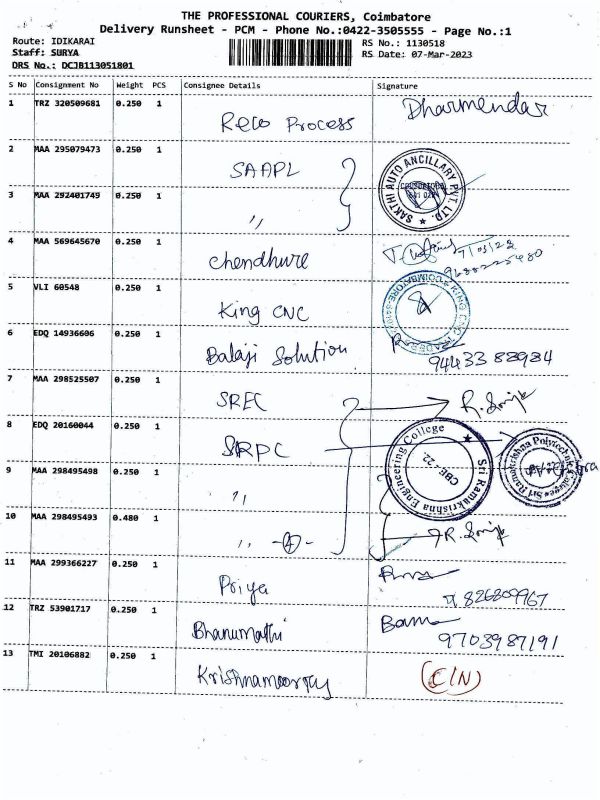 THE PROFESSIONAL COURIERS, Coimbatore
Delivery Runsheet - PCM - Phone No.:0422-3505555 - Page No.:1
Route: IDIKARAI
Staff: SURYA
DRS No.: DCJB113051801
RS No.: 1130518
RS Date: 07-Mar-2023
S No Consignment No Weight PCS Consignee Details Signature
1 TRZ 320509681 0.250 1 Reco Process Dharmendar
2 MAA 295079473 0.250 1 SAAPL
SAKTHI AUTO ANCILLARY PVT. LTD.
3 MAA 292401749 0.250 1 ,,
4 MAA 569645670 0.250 1 Chendhure
5 VLI 60548 0.250 1 King CNC
6 EDQ 14936606 0.250 1 Balaji Solution 94433 88984
7 MAA 298525507 0.250 1 SREC
8 EDQ 20160044 0.250 1 SRPC
Sri Ramakrishna Engineering College
CBE-22
9 MAA 298495498 0.250 1 ,,
10 MAA 298495493 0.480 1 ,, -4-
11 MAA 299366227 0.250 1 Priya
12 TRZ 53901717 0.250 1 Bhanumathi 9703987191
13 TMI 20106882 0.250 1 Krishnamoorthy (C/N)